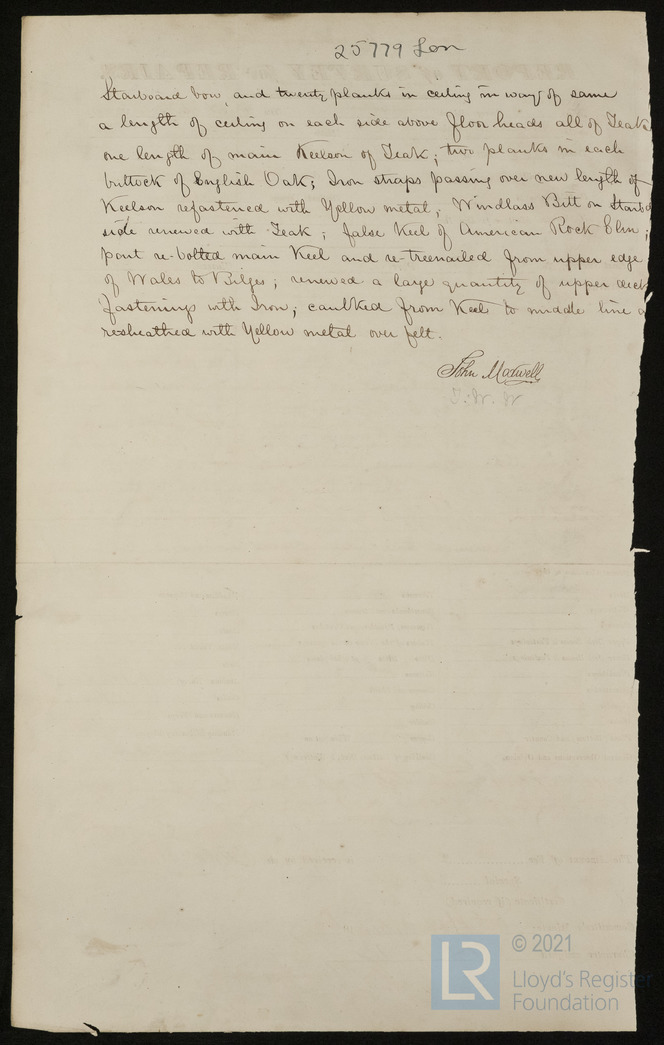 25779 Lon
Starboard bow, and twenty planks in ceiling in way of same
a length of ceiling on each side above floor heads all of Teak
one length of main Keelson of Teak; two planks in each
buttock of English Oak; Iron straps passing over new length of
Keelson refastened with Yellow metal; Windlass Bitt on Starbd
side renewed with Teak; false Keel of American Rock Elm;
part re-bolted main Keel and re-treenailed from upper edge
of Wales to Bilges; renewed a large quantity of upper deck
fastenings with Iron; caulked from Keel to middle line
resheathed with Yellow metal over felt.
John Maxwell
© 2021
LR
Lloyd's Register
Foundation